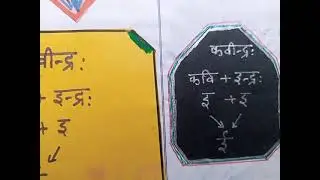 वीन्द्र:
+ इन्द्र:
+ इ
कवीन्द्र:
कवि + इन्द्र:
इ + इ
ई